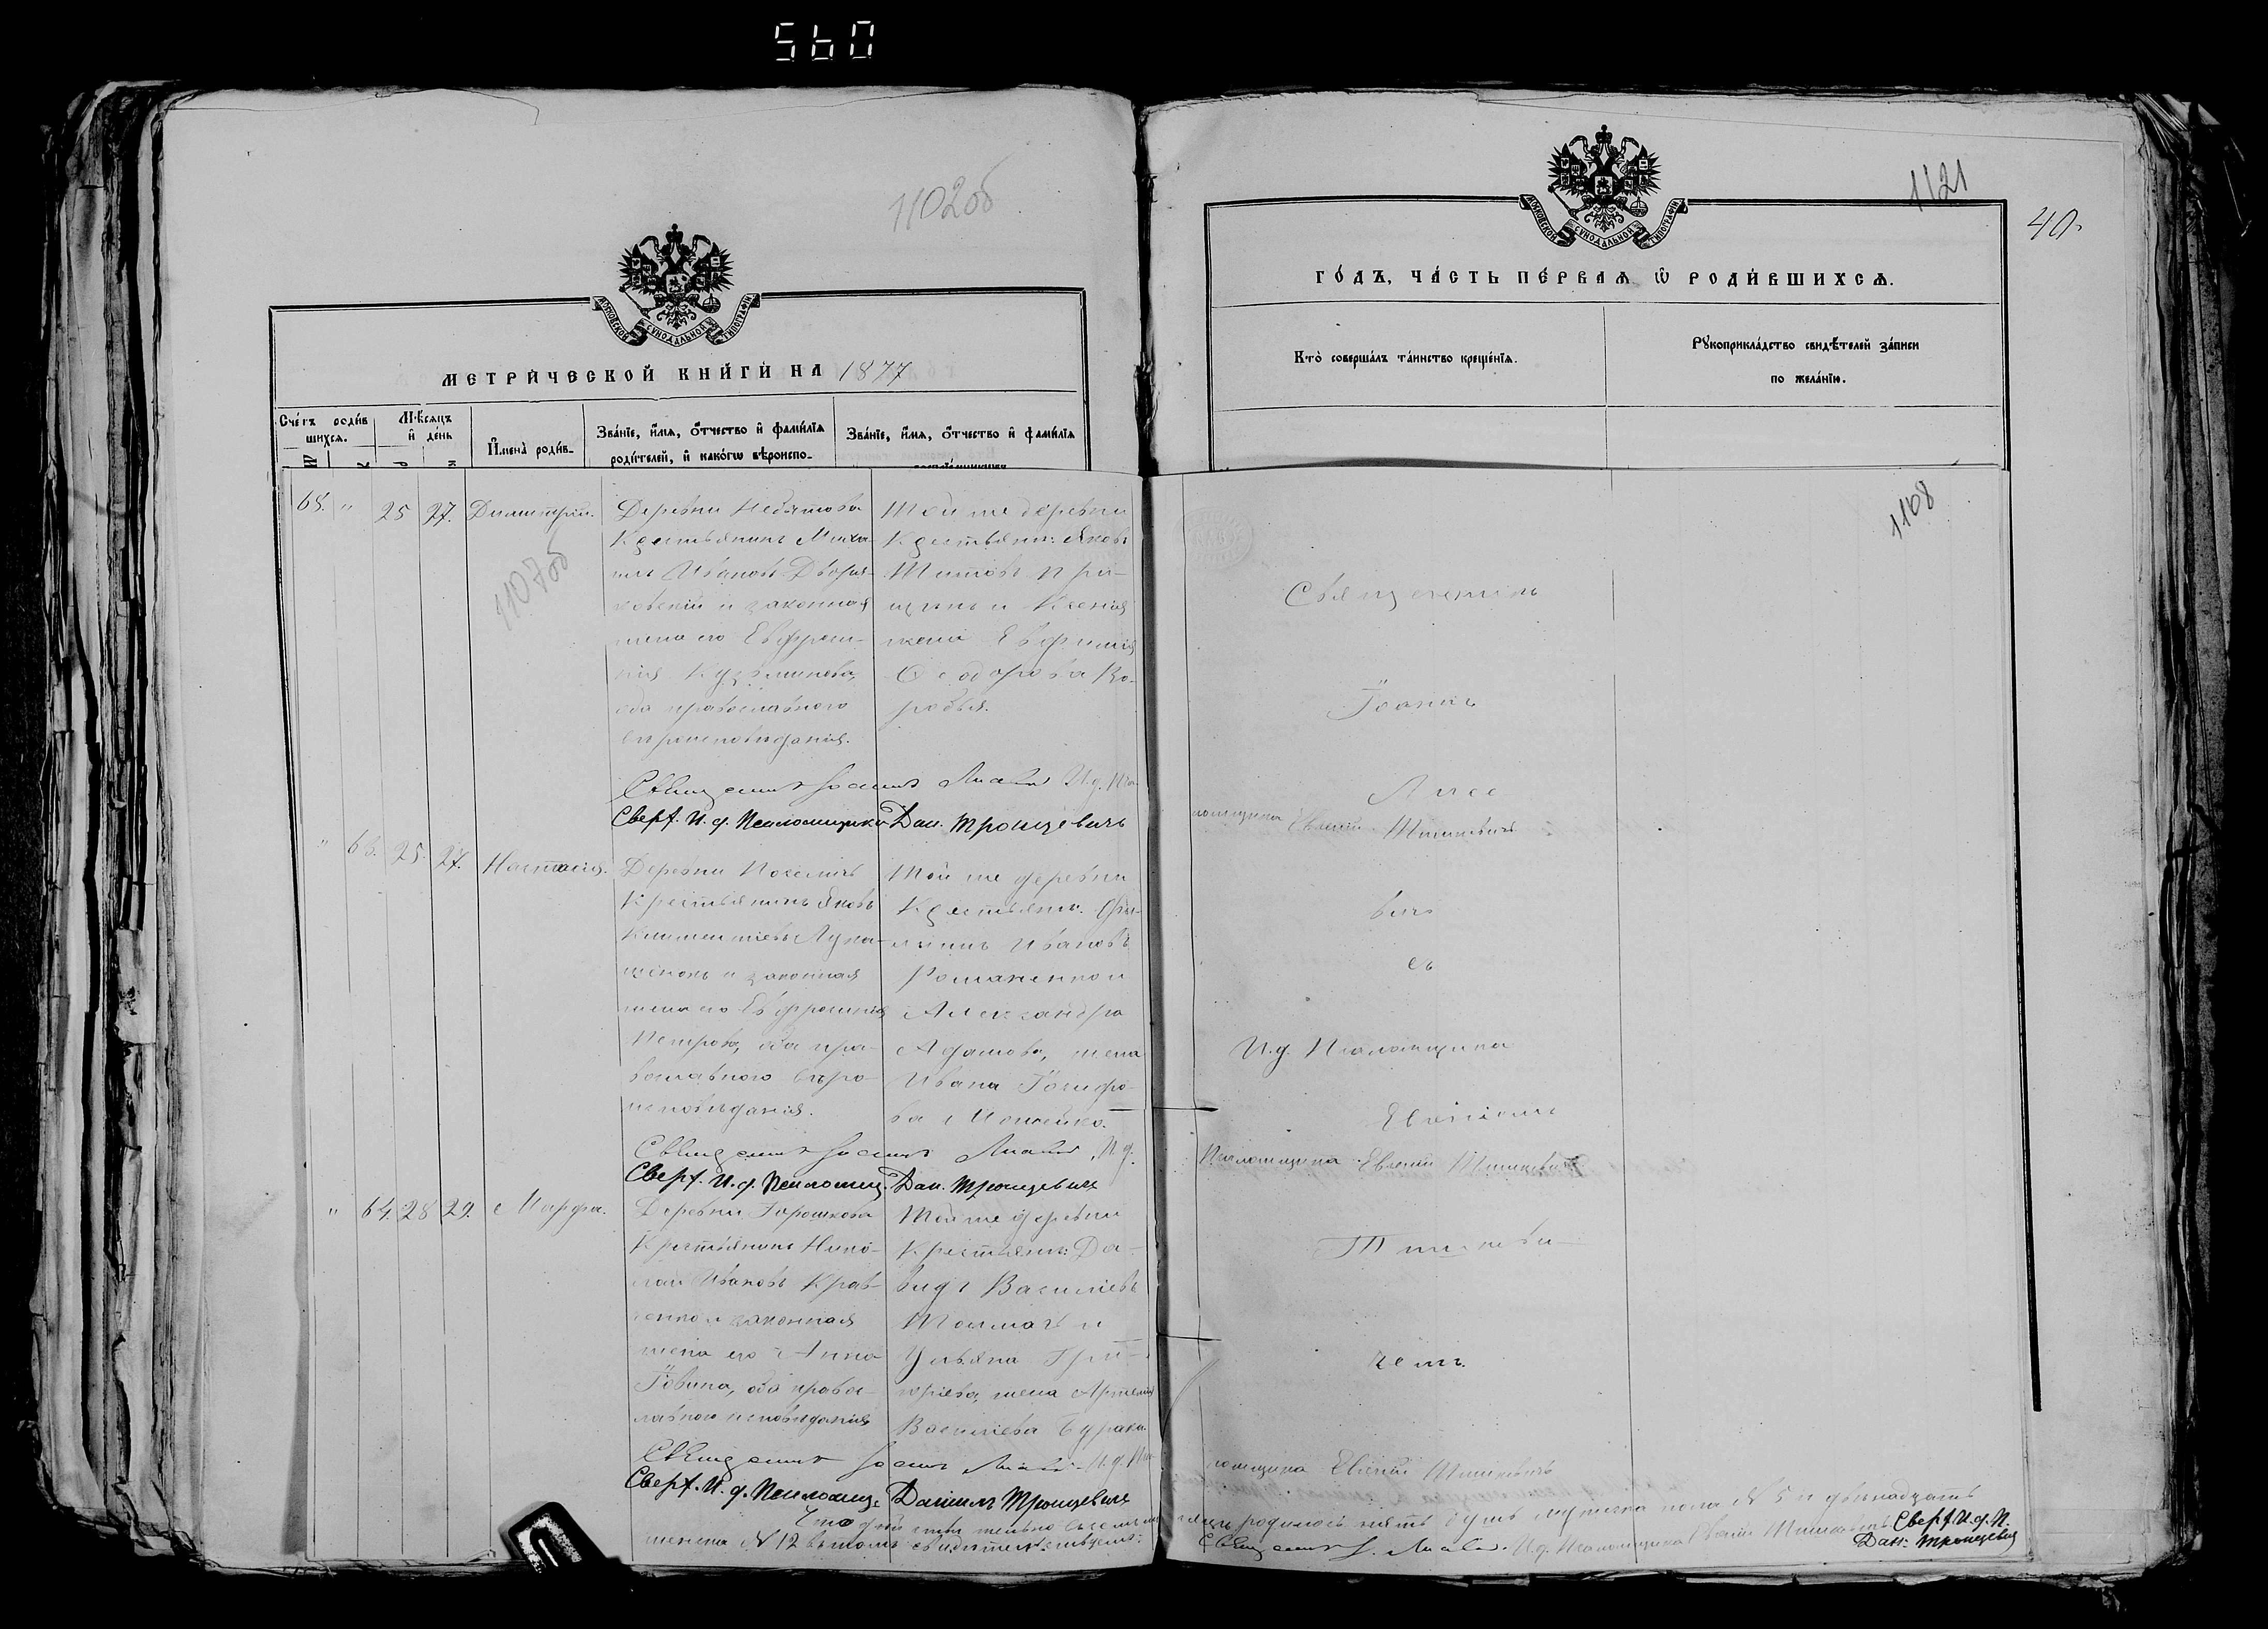 560
1102об
МОСКОВСКОЙ СѴНОДАЛЬНОЙ ТИПОГРАФІИ
МЕТРИ́ЧЕСКОЙ КНИ́ГИ НА 1877
Сче́тъ роди́в
шихся.
Мѣ́сяцъ
и҆ де́нь
И҆мена̀ роди́в-
Зва́нїе, и҆́мя, ѻ҆́тчество и҆ фами́лїя
роди́телей, и҆ како́гѡ вѣроиспо-
Зва́нїе, и҆́мя, ѻ҆́тчество и҆ фами́лїя
68. " 25 27. Димитрій.
1107об
Деревни
Крестьянинъ Миха-
илъ Ивановъ Дворя-
ковскій и законная
жена его Евфроси-
нія Кузьминова,
оба православного
вѣроисповѣданія.
Той же деревни
Крестьян: Яковъ
Титовъ При-
щипъ и Ксенія
жена
Ѳеодорова Во-
робья.
Священникъ Іоаннъ И. д. Пса-
Сверх. И. д. Псаломщика Дан. Троицевичъ
" 63. 25. 27. Настасія.
Деревни
Крестьянинъ Яковъ
Климентіевъ Лука-
шенокъ и законная
жена его Евфросинія
Петрова, оба пра-
вославного вѣро-
исповѣданія.
Той же деревни
Крестьян.
Ивановъ
Романенко и
Александра
Адамова, жена
Ивана Іосифо-
ва Мошейко.
Священникъ Іоаннъ И. д.
Сверх. И. д. Псаломщ. Дан. Троицевичъ
" 64. 28 29. Марфа.
Деревни Горошкова
Крестьянинъ Нико-
лай Ивановъ Крав-
ченко и законная
жена его Анна
Іовина, оба правос-
лавного исповѣданія
Той же деревни
Крестьян: Да-
видъ Василіевъ
Толмачъ и
Ульяна Гри-
горіева, жена Артемія
Василіева Бурака.
Священникъ Іоаннъ И. д. Пса-
Сверх. И. д. Псаломщ. Даніилъ Троицевичъ
Что
женска № 12 въ томъ свидѣтельствуемъ:
1121
40.
МОСКОВСКОЙ СѴНОДАЛЬНОЙ ТИПОГРАФІИ
ГО́ДЪ, ЧА́СТЬ ПЕ́РВАЯ Ѡ҆ РОДИ́ВШИХСЯ.
Кто̀ соверша́лъ та́инство креще́нїя.
Рꙋкоприкла́дство свидѣ́телей за́писи
по жела́нїю.
1108
Священникъ
Іоаннъ
Лисе
ломщика Евгеній Тишкевичъ
вичъ
съ
И. д. Псаломщика
Евгеніемъ
Псаломщика Евгеній Тишкевичъ
Тишкеви-
чемъ.
ломщика Евгеній Тишкевичъ
родилось пять душъ мужеска пола № 5 и двѣнадцать
Священникъ И. д. Псаломщика Евгеній Тишкевичъ Сверх. И. д. П.
Дан: Троицевич